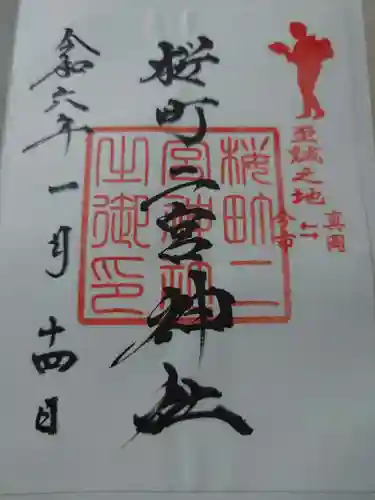 至誠之地
真岡
⇆
今市
桜町二宮神社
桜町二
宮神社
之御印
令和六年一月十四日